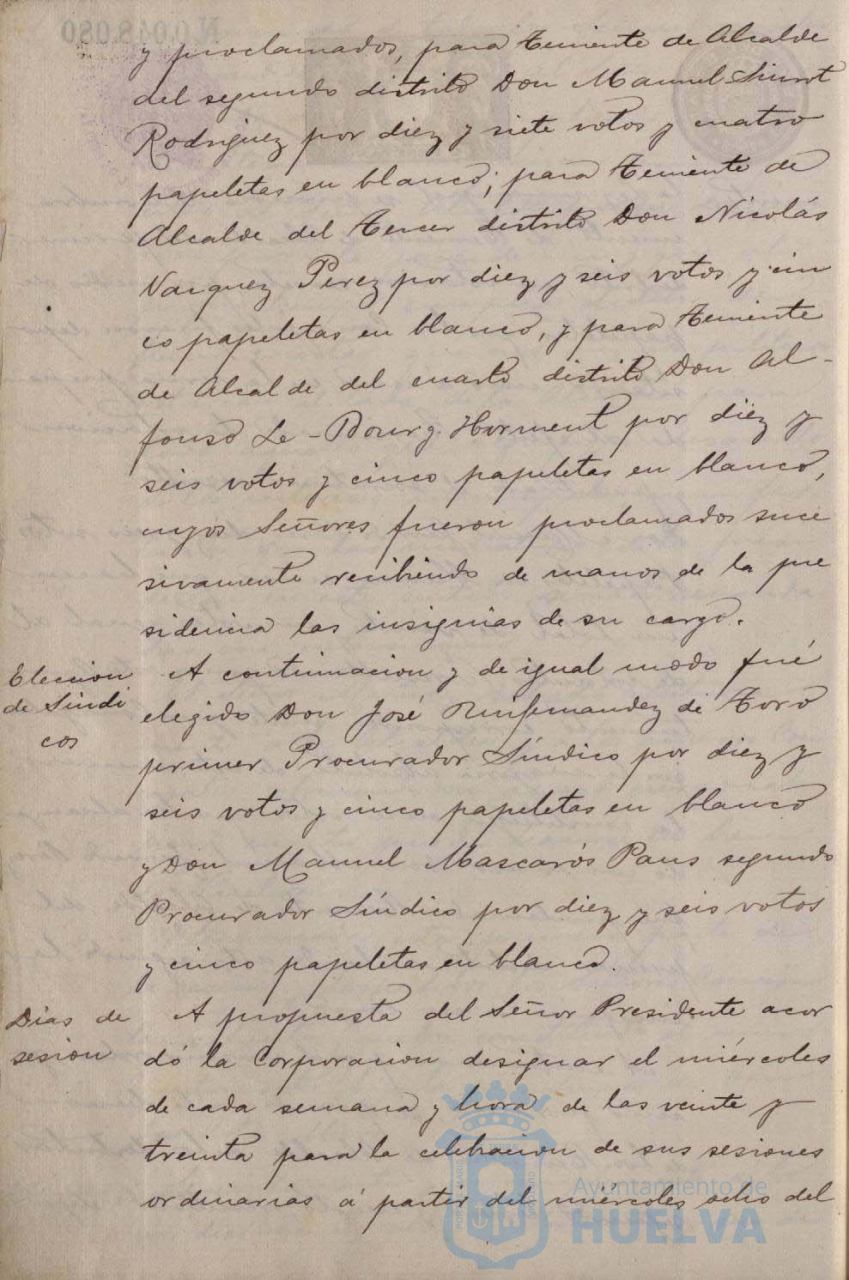 N.0.048.080
y proclamados, para Teniente de Alcalde
del segundo distrito Don Manuel Siurot
Rodriguez por diez y siete votos y cuatro
papeletas en blanco; para Teniente de
Alcalde del Tercer distrito Don Nicolás
Vazquez Perez por diez y seis votos y cin
co papeletas en blanco, y para Teniente
de Alcalde del cuarto distrito Don Al-
fonso Le-Bourg Horment por diez y
seis votos y cinco papeletas en blanco,
cuyos Señores fueron proclamados suce
sivamente recibiendo de manos de la pre
sidencia las insignias de su cargo.
Eleccion
de Sindi
cos
A continuacion y de igual modo fué
elegido Don José Ruifernandez de Toro
primer Procurador Síndico por diez y
seis votos y cinco papeletas en blanco
y Don Manuel Mascarós Pans segundo
Procurador Síndico por diez y seis votos
y cinco papeletas en blanco.
Dias de
sesion
A propuesta del Señor Presidente acor
dó la Corporacion designar el miércoles
de cada semana y hora de las veinte y
treinta para la celebracion de sus sesiones
ordinarias á partir del miércoles ocho del
Ayuntamiento de
HUELVA